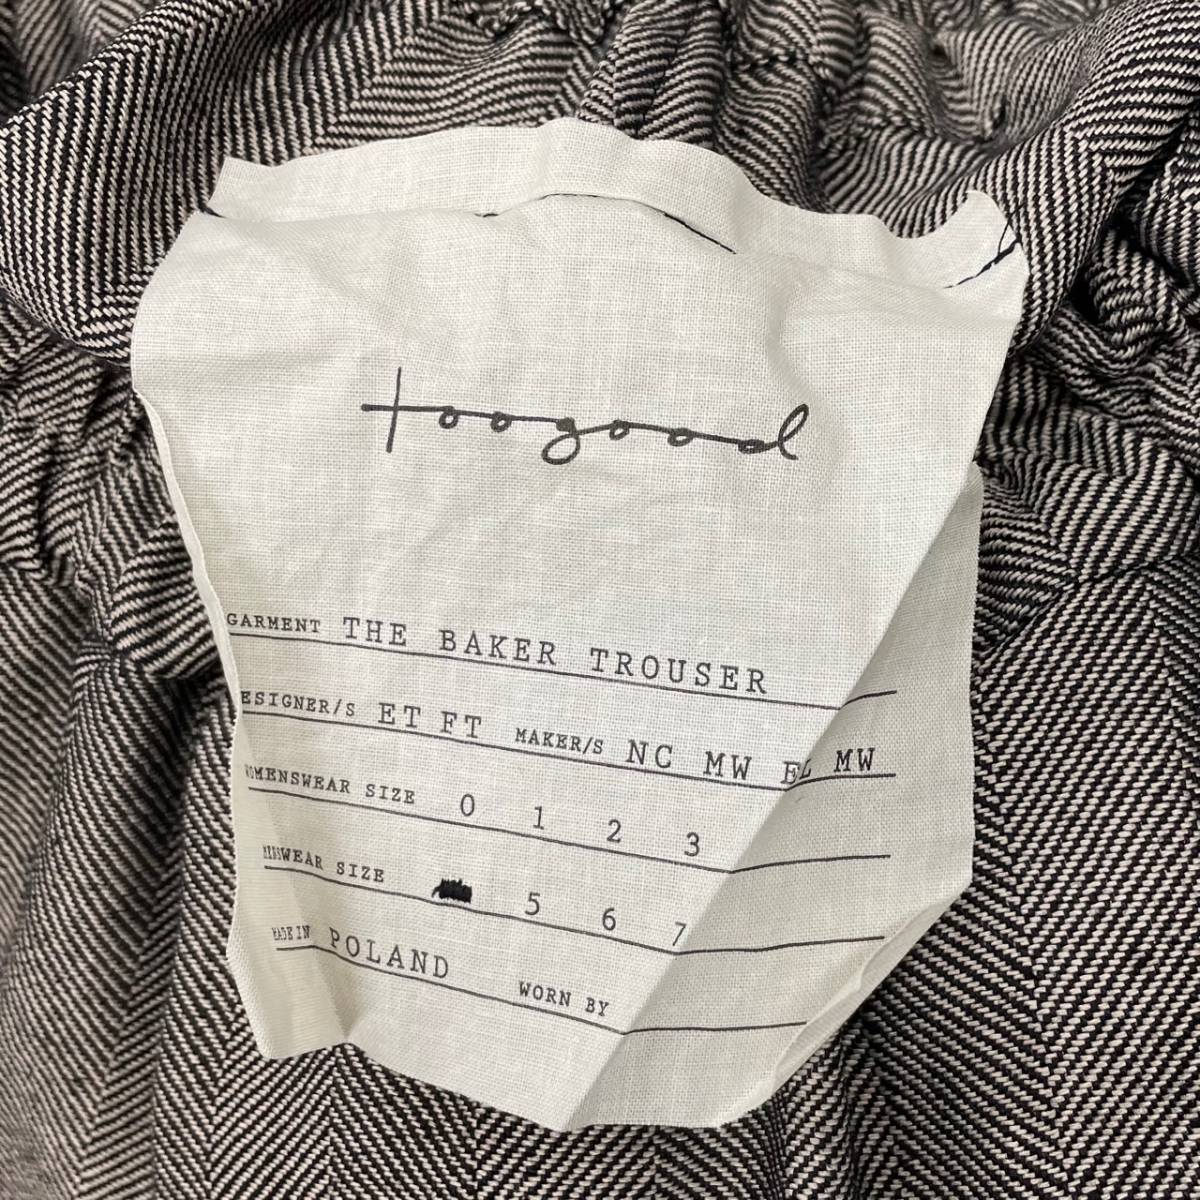 toogood
GARMENT THE BAKER TROUSER
ESIGNER/S ET FT MAKER/S NC MW EL MW
WOMENSWEAR SIZE 0 1 2 3
MENSWEAR SIZE 5 6 7
MADE IN POLAND WORN BY